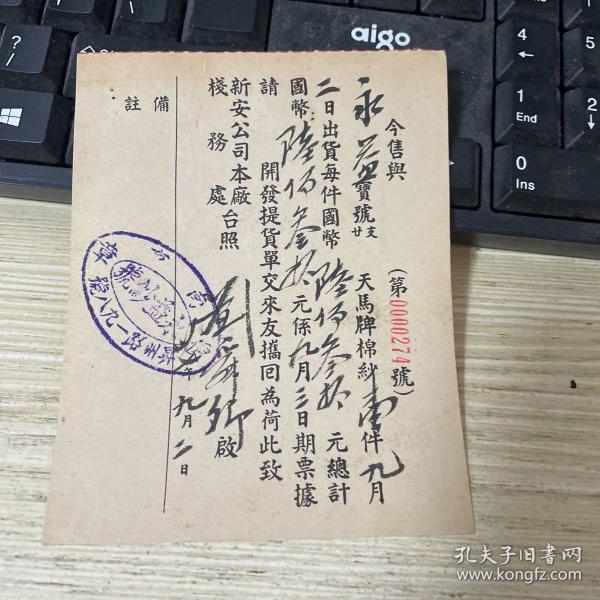 （第0000274號）
今售與永益寶號廿支天馬牌棉紗壹件九月
二日出貨每件國幣陸佰叁拾元總計
國幣陸佰叁拾元係九月三日期票據
請開發提貨單交來友攜回為荷此致
新安公司本廠棧務處台照
啟
年九月二日
備註
昇州路一九八號
章
aigo
?
/
4
1
End
2
0
Ins
孔夫子旧書网
www.kongfz.com